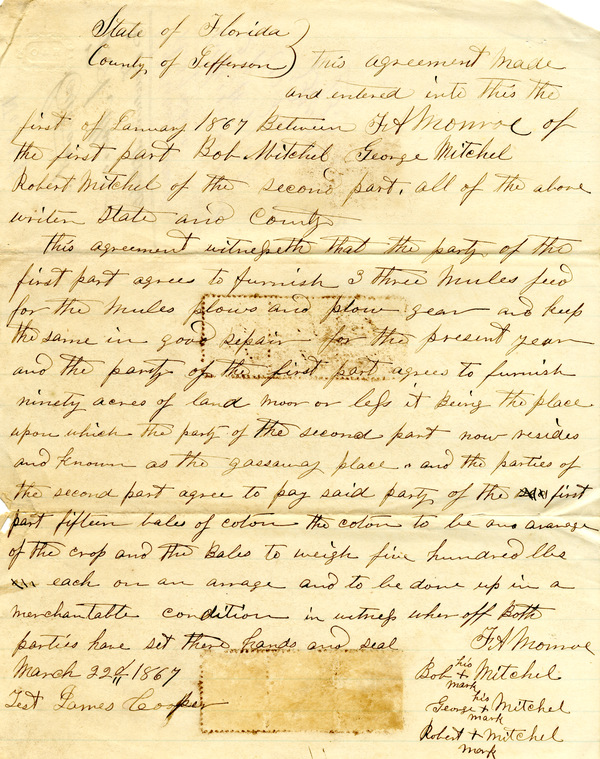 State of Florida )
County of Jefferson ) this agreement made
and entered into this the
first of January 1867 Between F A Monroe of
the first part Bob Mitchel George Mitchel
Robert Mitchel of the second part, all of the above
writen State and County
this agreement witnesseth that the party of the
first part agrees to furnish 3 three mules feed
for the mules plows and plow gear and keep
the same in good repair for the present year
and the party of the first part agrees to furnish
ninety acres of land moor or less it being the place
upon which the party of the second part now resides
and known as the gassaway place. and the parties of
the second part agree to pay said party of the first
part fifteen bales of coton the coton to be an avarage
of the crop and the Bales to weigh five hundred lbs
each on an arrage and to be done up in a
merchantable condition in witness wher off Both
parties have set there hands and seal
March 22d 1867
Test James Cooper
F A Monroe
Bob his + mark Mitchel
George his + mark Mitchel
Robert + mark Mitchel